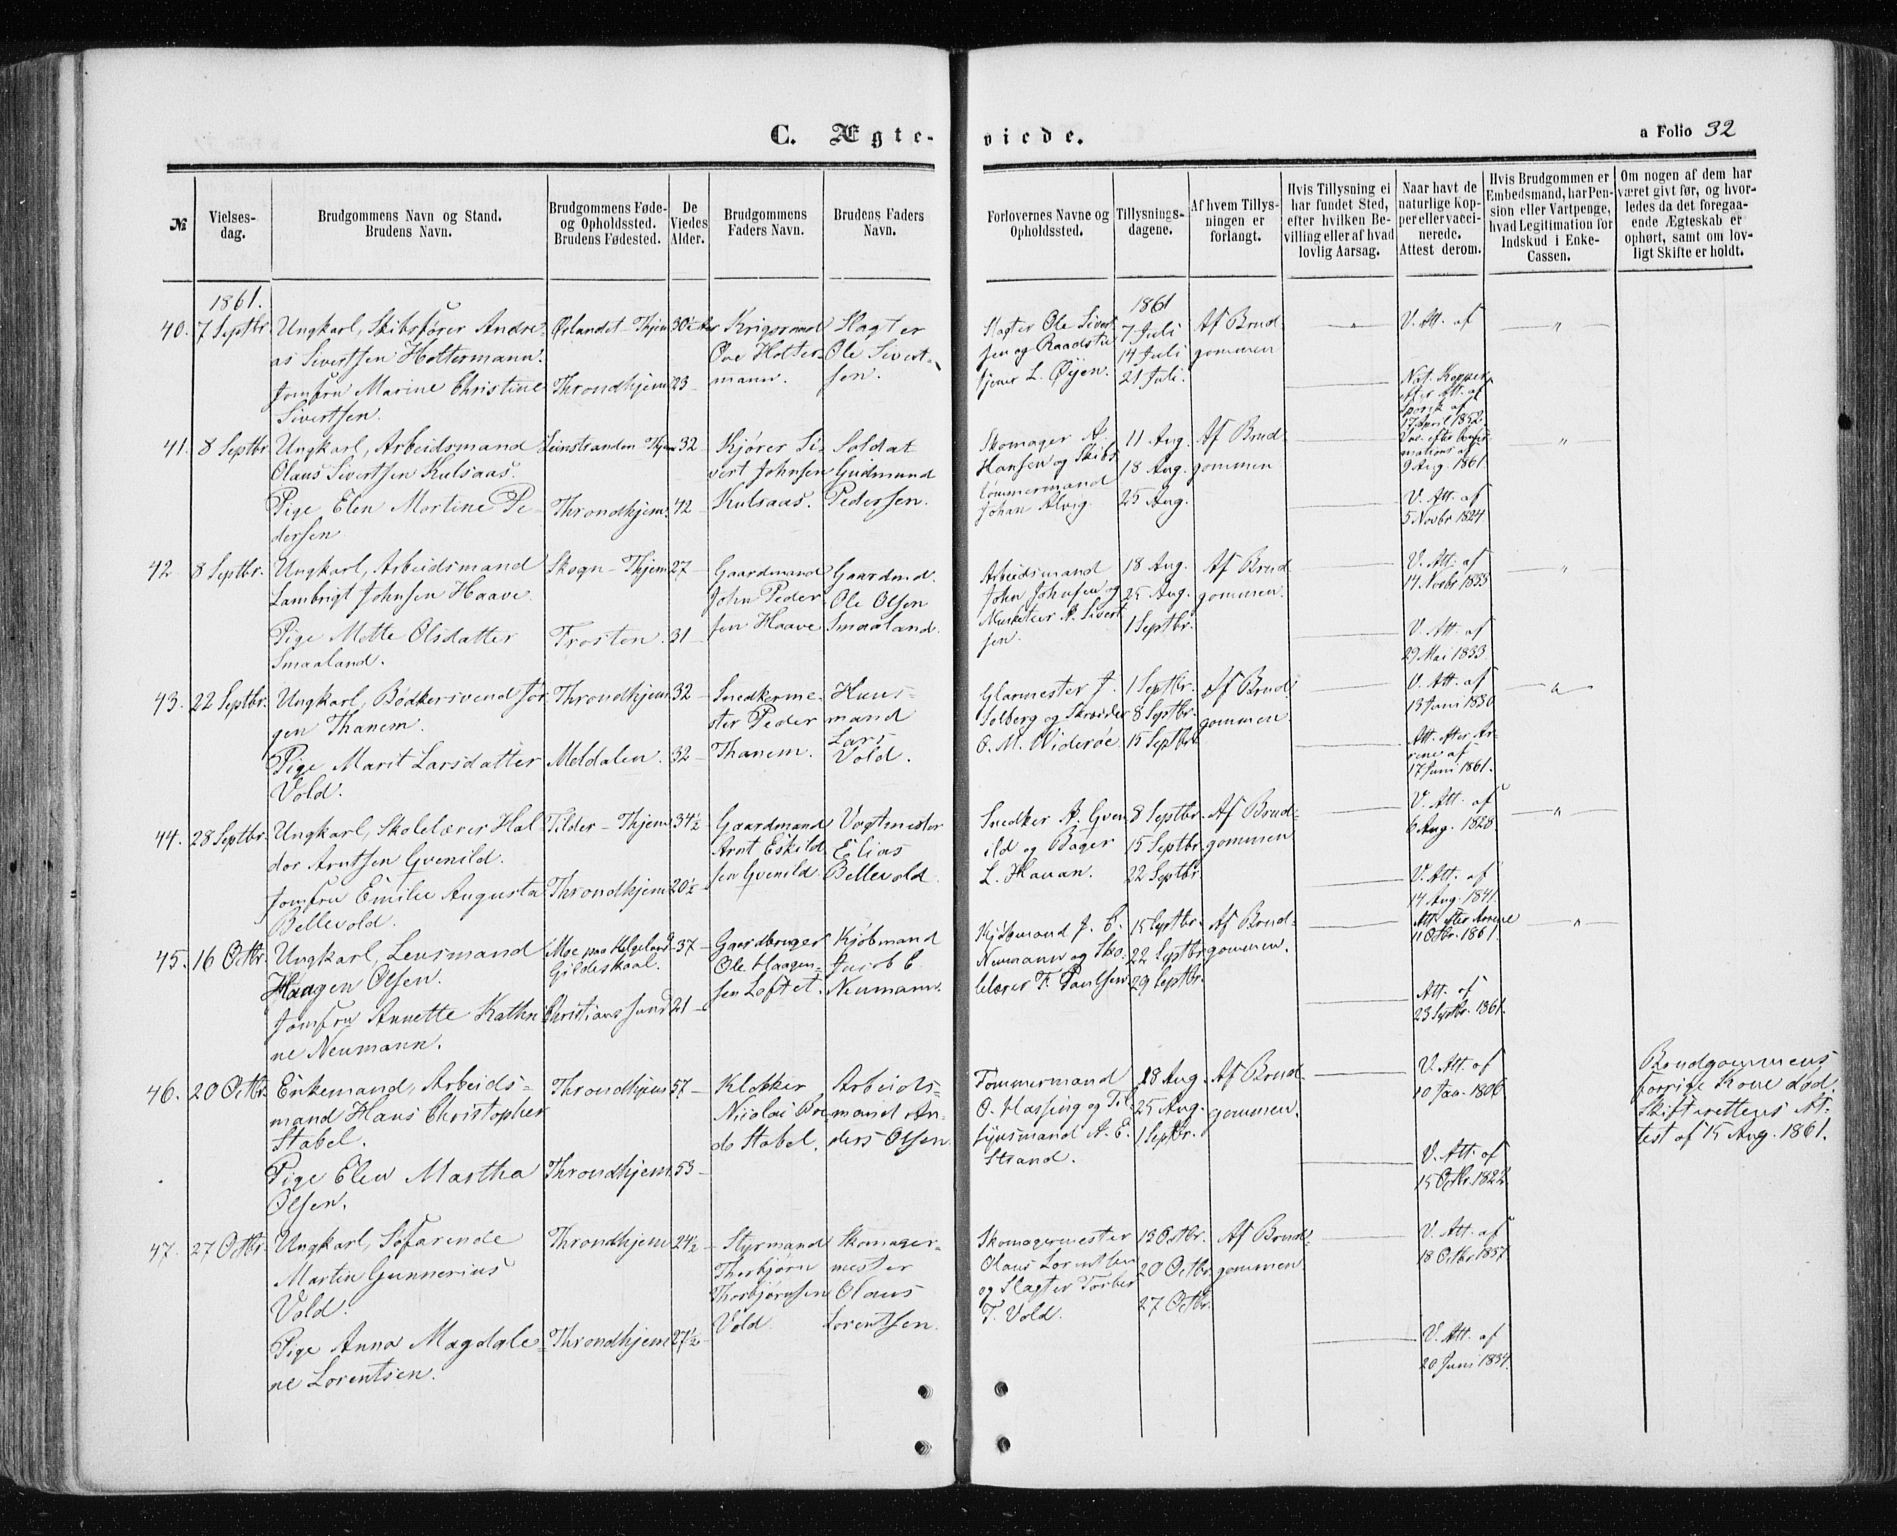 C. Ægte-
viede.
a Folio 32
№
Vielses-
dag.
Brudgommens Navn og Stand.
Brudens Navn.
Brudgommens Føde-
og Opholdssted.
Brudens Fødested.
De
Viedes
Alder.
Brudgommens
Faders Navn.
Brudens Faders
Navn.
Forlovernes Navne og
Opholdssted.
Tillysnings-
dagene.
Af hvem Tillys-
ningen er
forlangt.
Hvis Tillysning ei
har fundet Sted,
efter hvilken Be-
villing eller af hvad
lovlig Aarsag.
Naar havt de
naturlige Kop-
per eller vacci-
nerede.
Attest derom.
Hvis Brudgommen er
Embedsmand, har Pen-
sion eller Vartpenge,
hvad Legitimation for
Indskud i Enke-
Cassen.
Om nogen af dem har
været givt før, og hvor-
ledes da det foregaa-
ende Ægteskab er
ophørt, samt om lov-
ligt Skifte er holdt.
1861.
40. 7 Septbr.
Ungkarl, Skibsfører Andre-
as Sivertsen Holtermann.
Jomfru Marine Christine
Sivertsen.
Ørlandet - Thjem
Throndhjem
30½ Aar
23 -
Krigsraad
Ove Holter-
mann.
Slagter
Ole Sivert-
sen.
Slagter Ole Sivert
sen og Raadstu
tjener L. Øyen.
1861
7 Juli
14 Juli
21 Juli.
Af Brud
gommen
"
V. Att. af
Nat. Kopper
efter Att. af
17 April 1852.
"
41. 8 Septbr
Ungkarl, Arbeidsmand
Olaus Sivertsen Kulsaas.
Pige Elen Martine Pe-
dersen
Leinstranden Thjem
Throndhjem.
32 -
42 -
Kjører Si-
vert Johnsen
Kulsaas.
Soldat
Gudmund
Pedersen.
Skomager A.
Hansen og Skibs
tømmermand
Johan Alvig.
11 Aug.
18 Aug.
25 Aug.
Af Brud
gommen
Vac. efter Confir
mations af
9 Aug. 1861.
V. Att. af
5 Novbr 1824.
"
42 8 Septbr.
Ungkarl, Arbeidsmand
Lambrigt Johnsen Haave.
Pige Mette Olsdatter
Smaaland.
Skogn - Thjem
Frosten.
27 -
31 -
Gaardmand
John Peder
sen Haave
Gaardmd.
Ole Olsen
Smaaland.
Arbeidsmand
John Johnsen og
Musketeer P. Sivert
sen.
18 Aug.
25 Aug.
1 Septbr.
Af Brud
gommen.
V. Att. af
14. Novbr 1835
V. Att. af
29 Mai 1833
"
43. 22 Septbr.
Ungkarl, Bødkersvend Jør
gen Thanem.
Pige Marit Larsdatter
Vold.
Throndhjem
Meldalen.
32 -
32 -
Snedkerme-
ster Peder
Thanem.
Huus-
mand
Lars
Vold.
Glarmester J.
Solberg og Skrædder
O. M. Widerøe
1 Septbr.
8 Septbr.
15 Septbr.
Af Brud
gommen.
V. Att. af
13 Juni 1830
Att. efter Ar-
rene af
17 Juni 1861.
"
44. 28 Septbr.
Ungkarl, Skolelærer Hal
dor Arntsen Gvenild.
Jomfru Emilie Augusta
Bellevold.
Tilder - Thjem
Throndhjem
34½
20½
Gaardmand
Arnt Eskild
sen Gvenild
Vogtmester
Elias
Bellevold.
Snedker A. Gven
ild og Bager
L. Havan.
8 Septbr.
15 Septbr.
22 Septbr
Af Brud-
gommen
V. Att. af
6 Aug. 1828
V. Att. af
14 Aug. 1841.
"
45. 16 Octbr.
Ungkarl, Lensmand
Haagen Olsen.
Jomfru Annette Kathri
ne Neumann.
Moe paa Helgeland -
Gildeskaal.
Christianssund
37 -
21 -
Gaardbruger
Ole Haagen-
sen Loftet.
Kjøbmand
Jacob E
Neumann.
Kjøbmand J. E.
Neumann og Sko
lelærer F. Paulsen
15 Septbr.
22 Septbr
29 Septbr.
Af Brud-
gommen.
Att. efter Arrene
11 Octbr. 1861.
Att. af
23 Septbr. 1861.
"
46. 20 Octbr.
Enkemand, Arbeids-
mand Hans Christopher
Stabel.
Pige Elen Martha
Olsen.
Throndhjem
Throndhjem
57 -
53 -
Klokker
Nicolai Bre-
do Stabel.
Arbeids-
mand An-
ders Olsen.
Tømmermand
O. Hassing og Til
synsmand A. E.
Strand.
18 Aug.
25 Aug.
1 Septbr.
Af Brud-
gommen.
V. Att. af
10 Jan. 1806
V. Att. af
15 Octbr. 1822
Brudgommens
forrige Kone død.
Skifterettens At-
test af 15 Aug. 1861.
47. 27 Octbr.
Ungkarl, Søfarende
Martin Gunnerius
Vold.
Pige Anna Magdale-
ne Lorentsen.
Throndhjem
Throndhjem
24½ -
27½
Styrmand
Thorbjørn
Thorbjørnsen
Vold
Skomager-
mester
Olaus
Lorentsen.
Skomagermester
Olaus Lorentsen
og Slagter Torber
T. Vold.
13 Octbr.
20 Octbr
27 Octbr.
Af Brud-
gommen
V. Att. af
18 Octbr 1857
V. Att. af
20 Juni 1834.